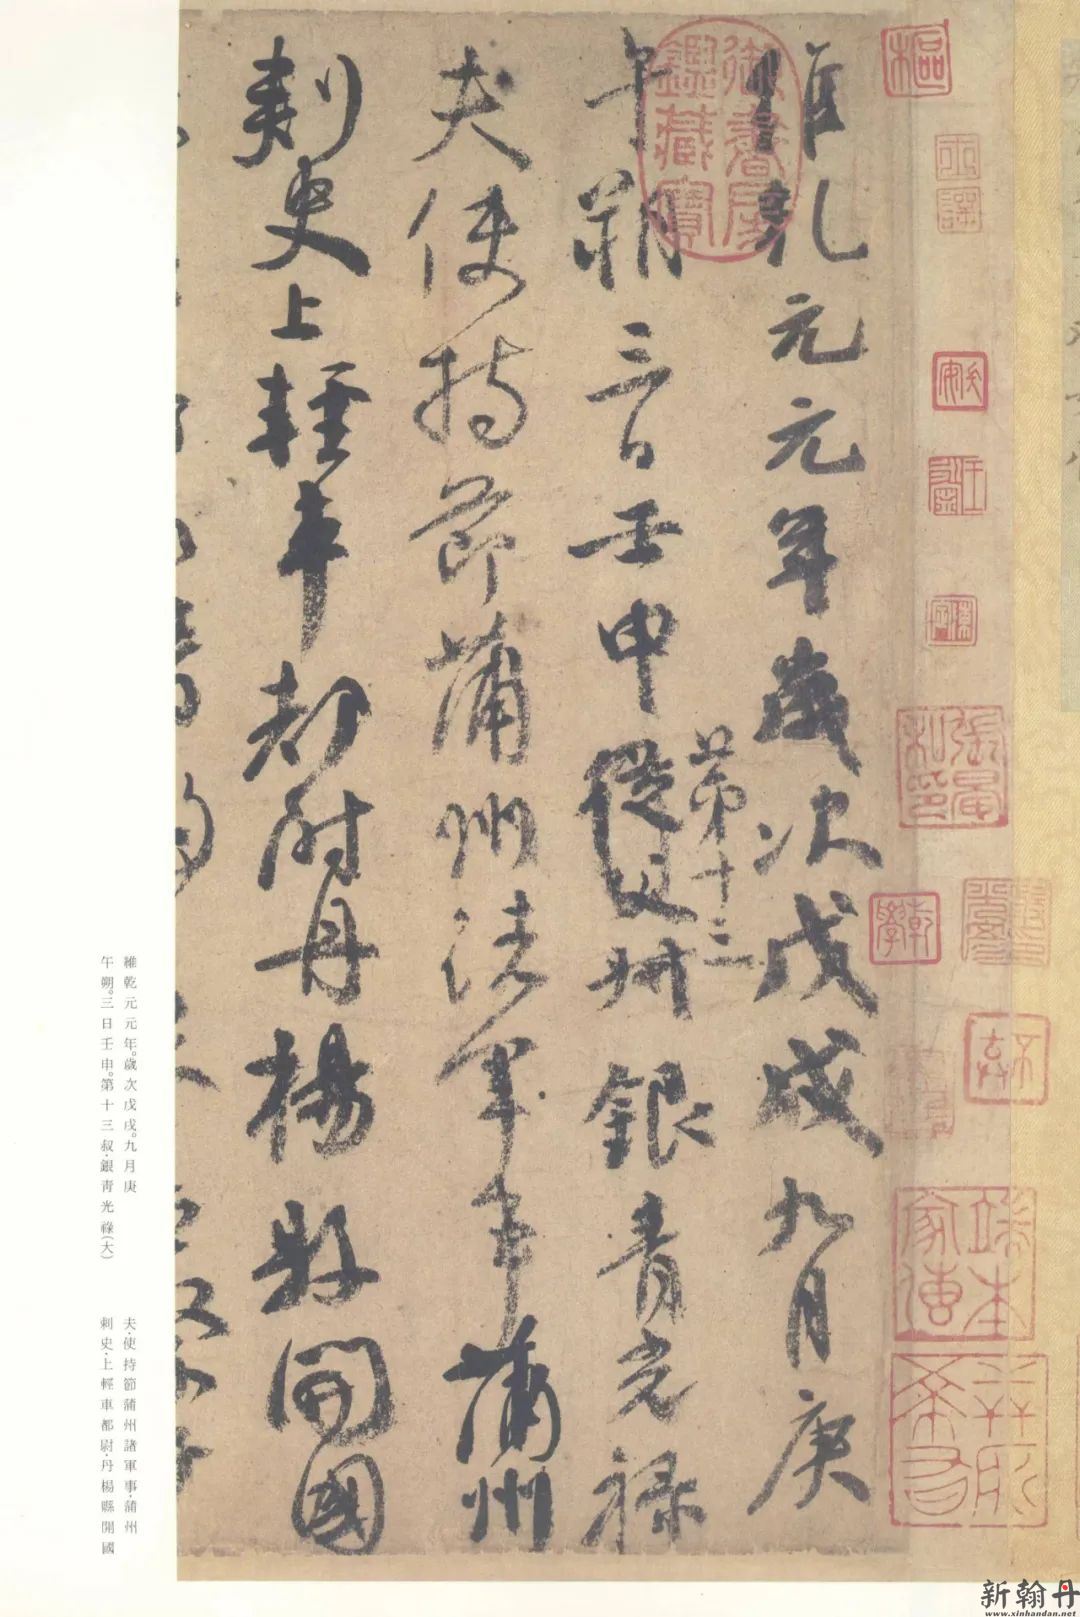 維乾元元年歲次戊戌九月庚
午朔三日壬申從父叔銀青光祿
第十三
夫使持節蒲州諸軍事蒲州
刺史上輕車都尉丹楊縣開國
御書房鑑藏寶
樞
乾學
端本家傳
維乾元元年。歲次戊戌。九月庚
午朔。三日壬申。第十三叔·銀青光祿(大)
夫·使持節蒲州諸軍事·蒲州
刺史·上輕車都尉·丹楊縣開國
新翰丹
www.xinhandan.net